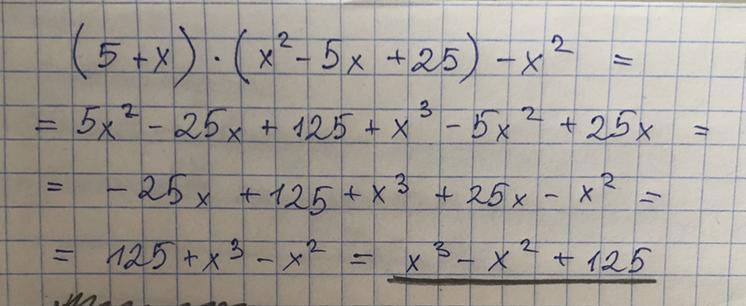 (5 + x) · (x² - 5x + 25) - x² =
= 5x² - 25x + 125 + x³ - 5x² + 25x =
= - 25x + 125 + x³ + 25x - x² =
= 125 + x³ - x² = x³ - x² + 125